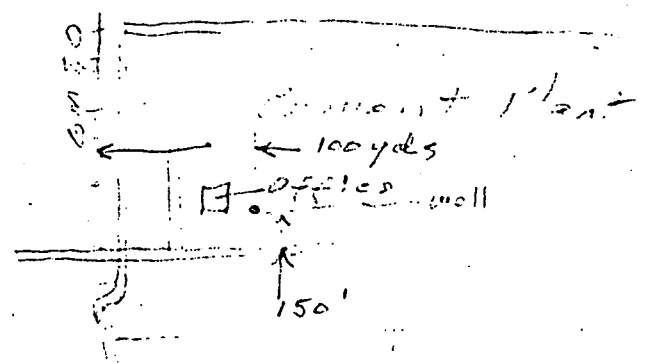 Cement Plant
100 yds
Office
well
150'